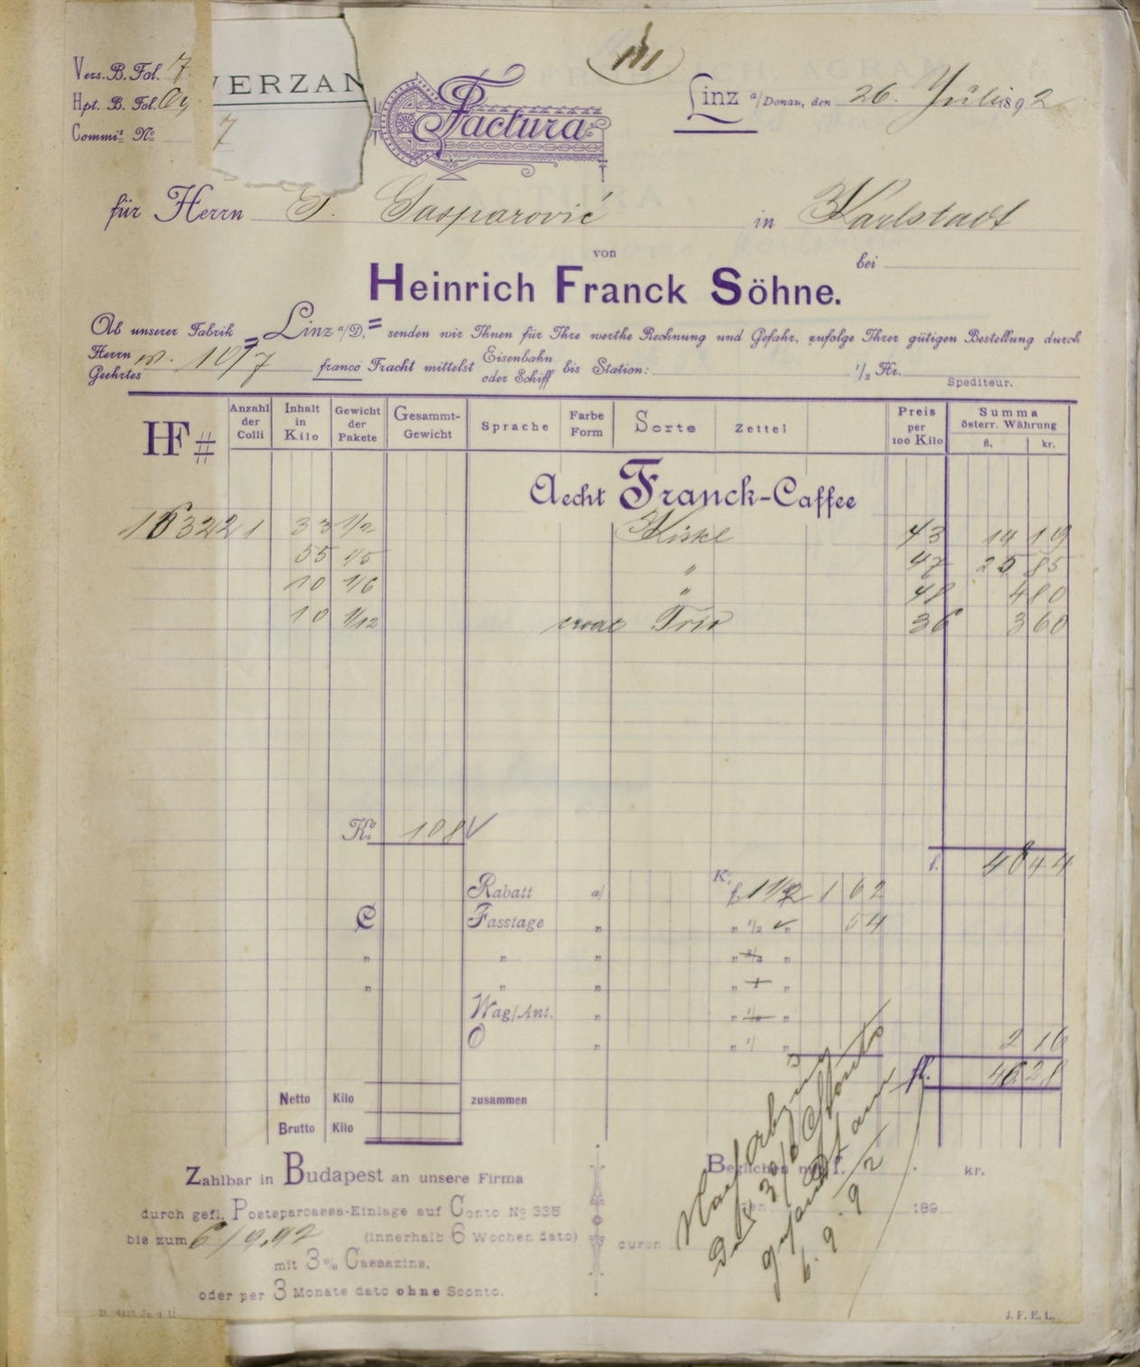 Vers. B. Fol. 7
Hpt. B. Fol.
Commis. No
VERZAN
7
Factura
Linz a/Donau, den 26. Juli 1892
für Herrn Gasparović in Karlstadt
von
bei
Heinrich Franck Söhne.
Ab unserer Fabrik = Linz a/D. = senden wir Ihnen für Ihre werthe Rechnung und Gefahr, zufolge Ihrer gütigen Bestellung durch
Herrn
Geehrtes v. 10/7 franco Fracht mittelst Eisenbahn oder Schiff bis Station: 1/2 Kr.
Spediteur.
HF #
Anzahl der Colli
Inhalt in Kilo
Gewicht der Pakete
Gesammt-Gewicht
Sprache
Farbe Form
Sorte
Zettel
Preis per 100 Kilo
Summa österr. Währung
fl. kr.
Aecht Franck-Caffee
16322 1 33 1/2 Kiste 43 14 19
55 1/5 " 47 25 85
10 1/6 " 48 4 80
10 1/12 croat Trio 36 3 60
Ko. 108
f. 48 44
Ko.
Rabatt a/ f. 1 1/2 1 62
C Fasstage " " 1/2 " 54
" " " " "
" " " " "
Wag/Ant. " " "
O " " 1/ "
2 16
fl. 46 28
Netto Kilo zusammen
Brutto Kilo
Zahlbar in Budapest an unsere Firma
durch gefl. Postsparcassa-Einlage auf Conto No 335
bis zum 6/9.92 (innerhalb 6 Wochen dato)
mit 3% Cassazins,
oder per 3 Monate dato ohne Sconto.
Beglichen mit f. . kr.
189
durch
6. 9. 92
J. F. E. L.